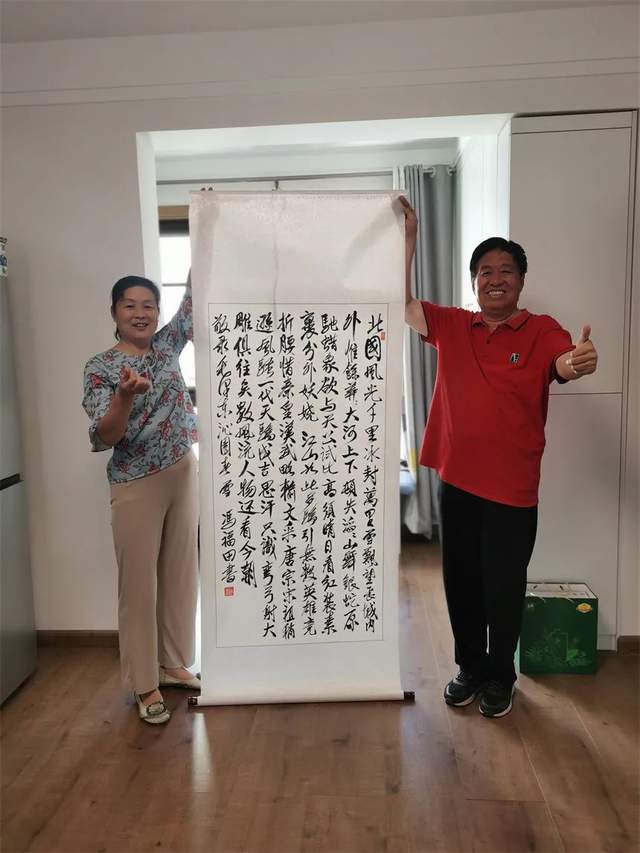 北國風光千里冰封萬里雪飄望長城內
外惟餘莽莽大河上下頓失滔滔山舞銀蛇原
馳蠟象欲與天公試比高須晴日看紅裝素
裹分外妖嬈江山如此多嬌引無數英雄競
折腰惜秦皇漢武略輸文采唐宗宋祖稍
遜風騷一代天驕成吉思汗只識彎弓射大
雕俱往矣數風流人物還看今朝
敬录毛澤東沁園春雪 馮福田書